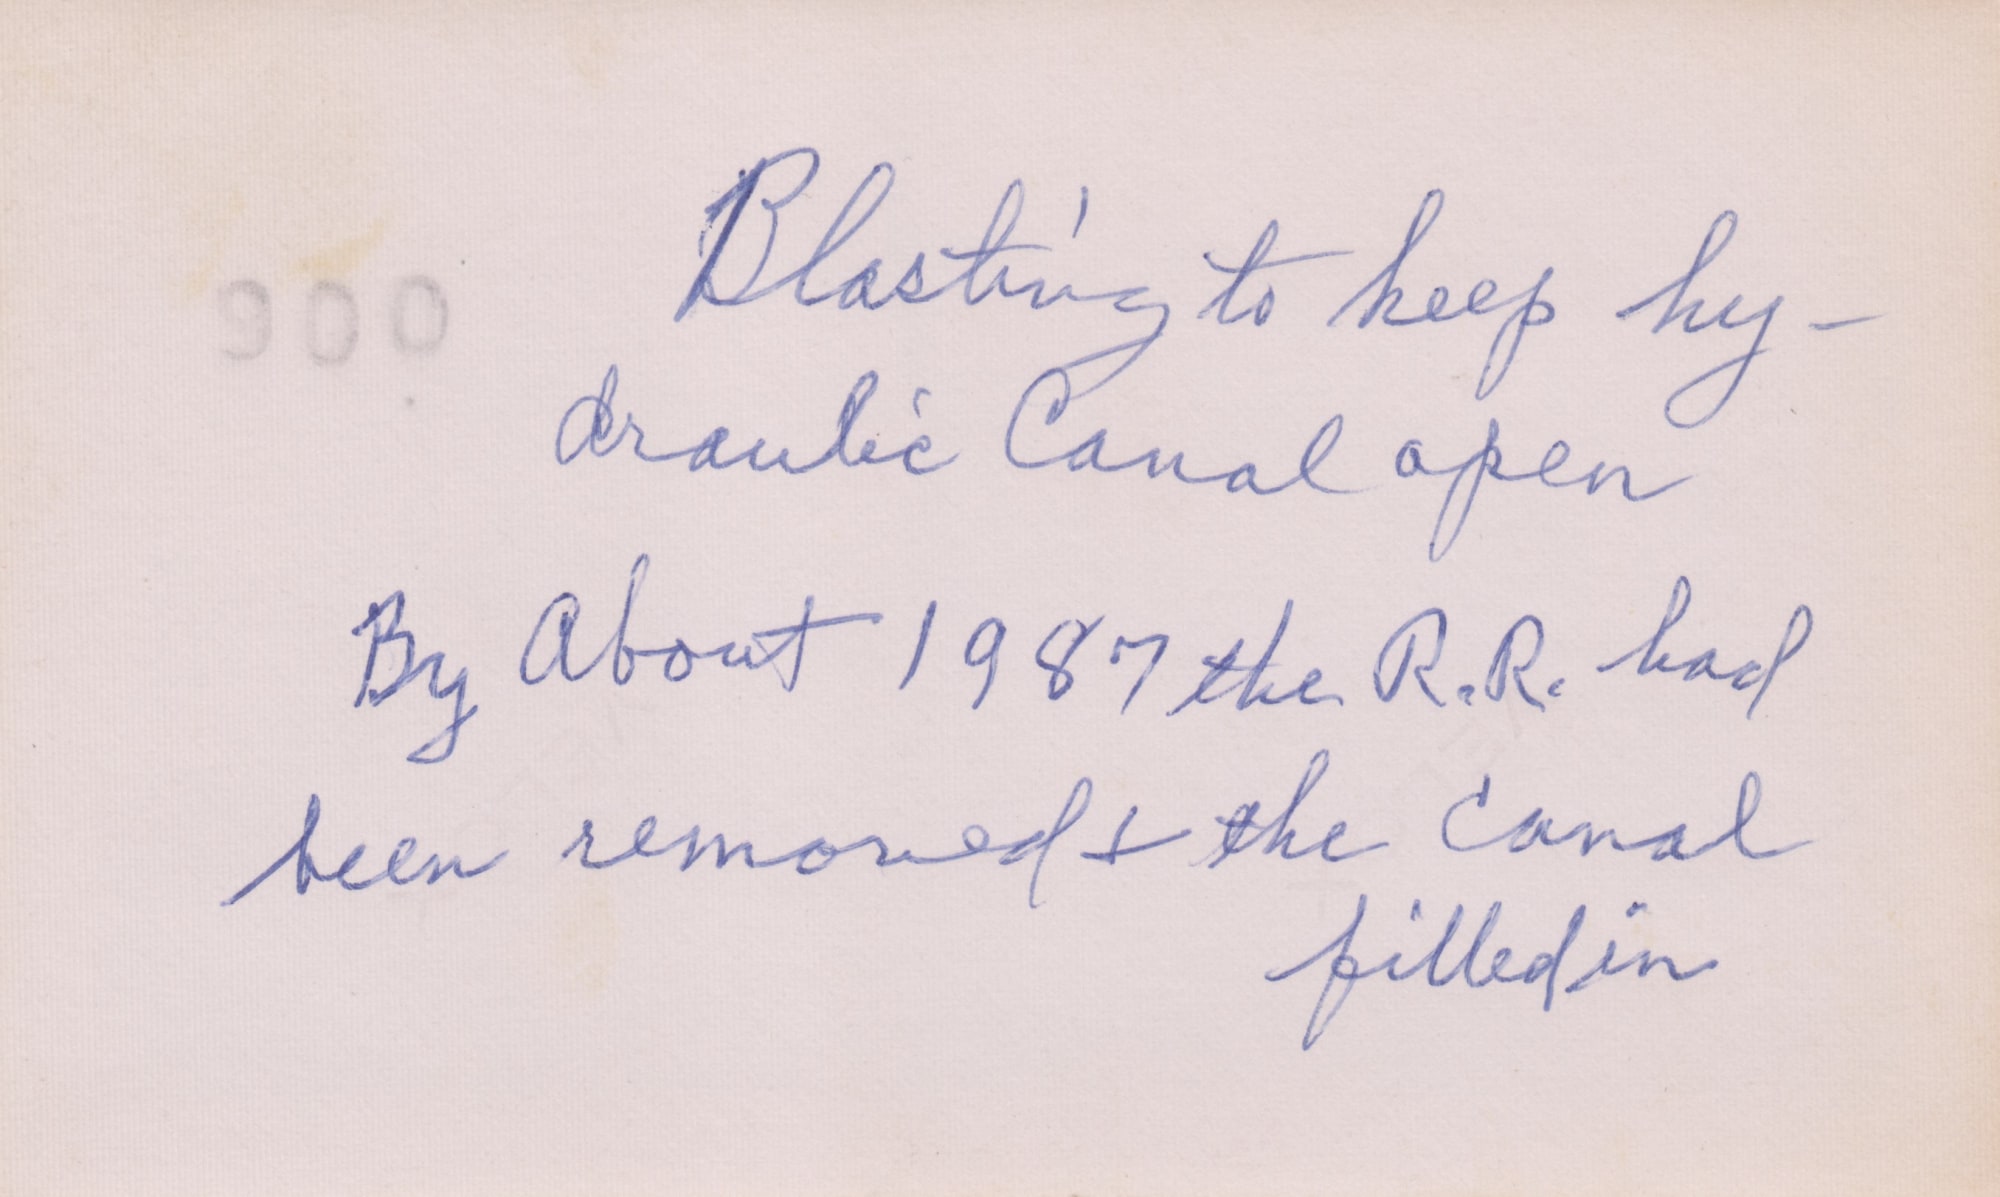 900
Blasting to keep hy-
draulic Canal open
By About 1987 the R.R. had
been removed & the canal
filled in